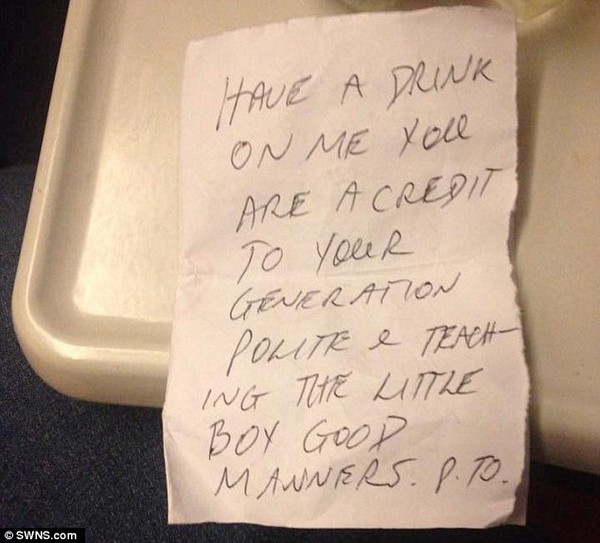 HAVE A DRINK
ON ME YOU
ARE A CREDIT
TO YOUR
GENERATION
POLITE & TEACH-
ING THE LITTLE
BOY GOOD
MANNERS. P.TO.
© SWNS.com